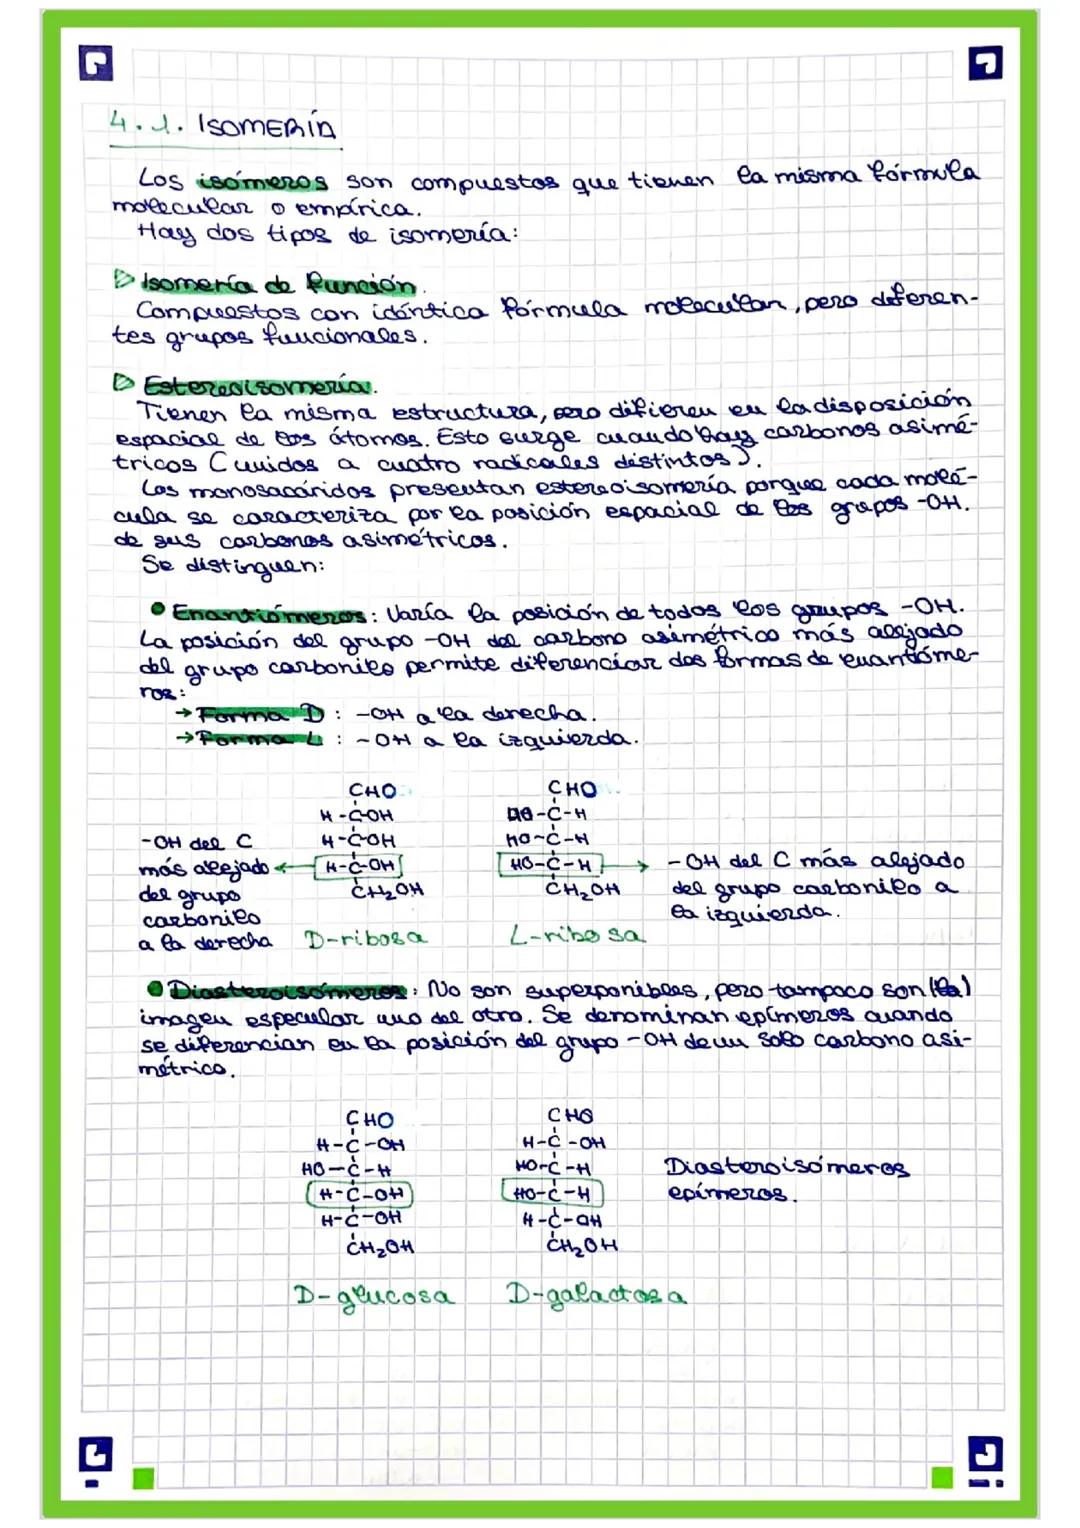 4.1. ISOMERÍA
Los isómeros son compuestos que tienen la misma fórmula
molecular o empírica.
Hay dos tipos de isomería:
▷ Isomería de función.
Compuestos con idéntica fórmula molecular, pero diferen-
tes grupos funcionales.
▷ Estereoisomería.
Tienen la misma estructura, pero difieren en la disposición
espacial de los átomos. Esto surge cuando hay carbonos asimé-
tricos (unidos a cuatro radicales distintos).
Los monosacáridos presentan estereoisomería porque cada molé-
cula se caracteriza por la posición espacial de los grupos -OH.
de sus carbonos asimétricos.
Se distinguen:
• Enantiómeros: Varía la posición de todos los grupos -OH.
La posición del grupo -OH del carbono asimétrico más alejado
del grupo carbonilo permite diferenciar dos formas de enantióme-
ros:
→ Forma D : -OH a la derecha.
→ Forma L : -OH a la izquierda.
CHO CHO
H-C-OH HO-C-H
-OH del C H-C-OH HO-C-H
más alejado ← H-C-OH HO-C-H → -OH del C más alejado
del grupo CH₂OH CH₂OH del grupo carbonilo a
carbonilo la izquierda.
a la derecha D-ribosa L-ribosa
• Diasteroisómeros: No son superponibles, pero tampoco son (la)
imagen especular uno del otro. Se denominan epímeros cuando
se diferencian en la posición del grupo -OH de un solo carbono asi-
métrico.
CHO CHO
H-C-OH H-C-OH
HO-C-H HO-C-H Diasteroisómeros
H-C-OH HO-C-H epímeros.
H-C-OH H-C-OH
CH₂OH CH₂OH
D-glucosa D-galactosa